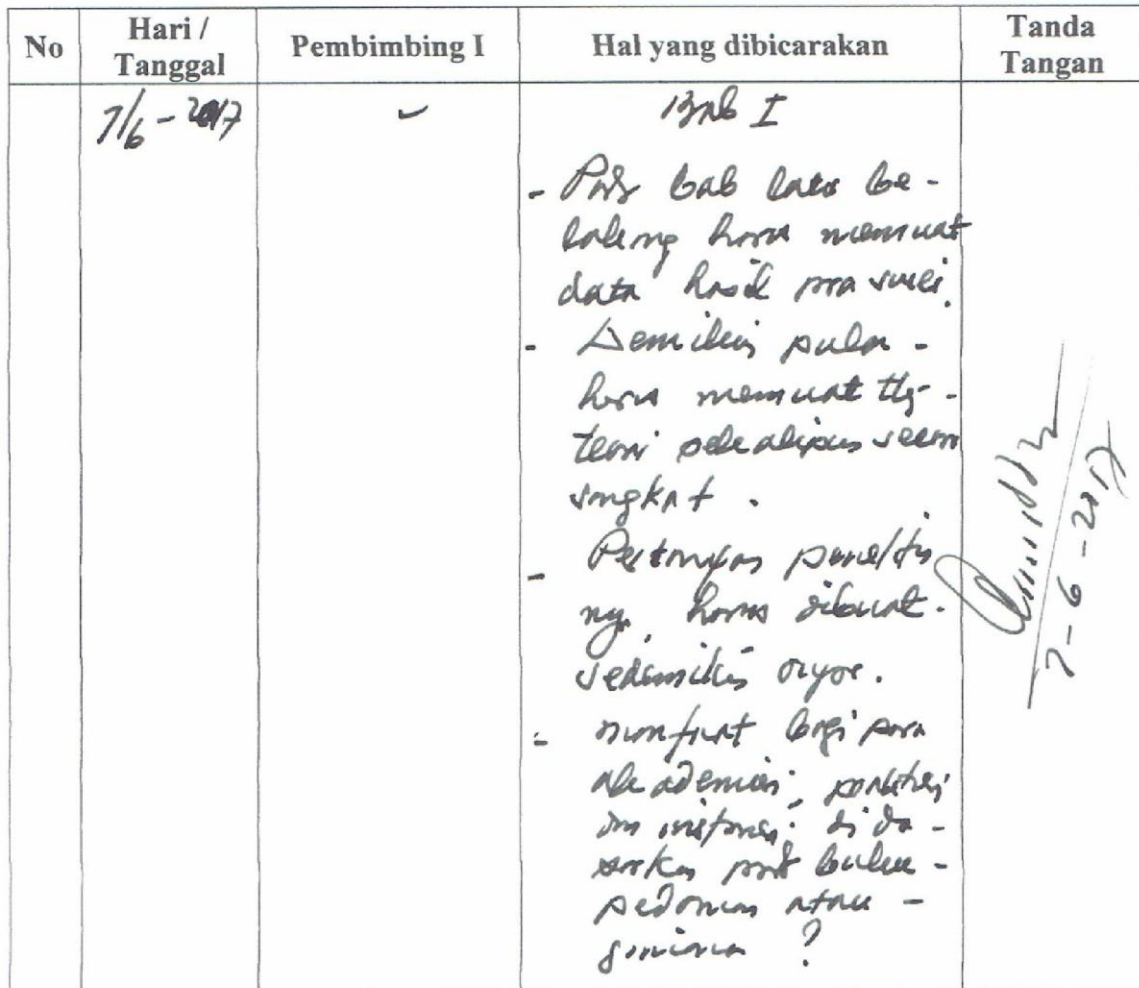 No Hari / Tanggal Pembimbing I Hal yang dibicarakan Tanda Tangan
7/6 - 2017 Bab I
- Pada bab latar be-
lakang harus memuat
data hasil pra survei.
- Demikian pula -
harus memuat ttg -
teori sekaligus secara
singkat.
- Pertanyaan penelitian
nya harus dibuat.
sedemikian
- manfaat bagi para
akademisi, praktisi
dan instansi; di da -
sarkan pada buku -
pedoman atau -
?
7-6-2017